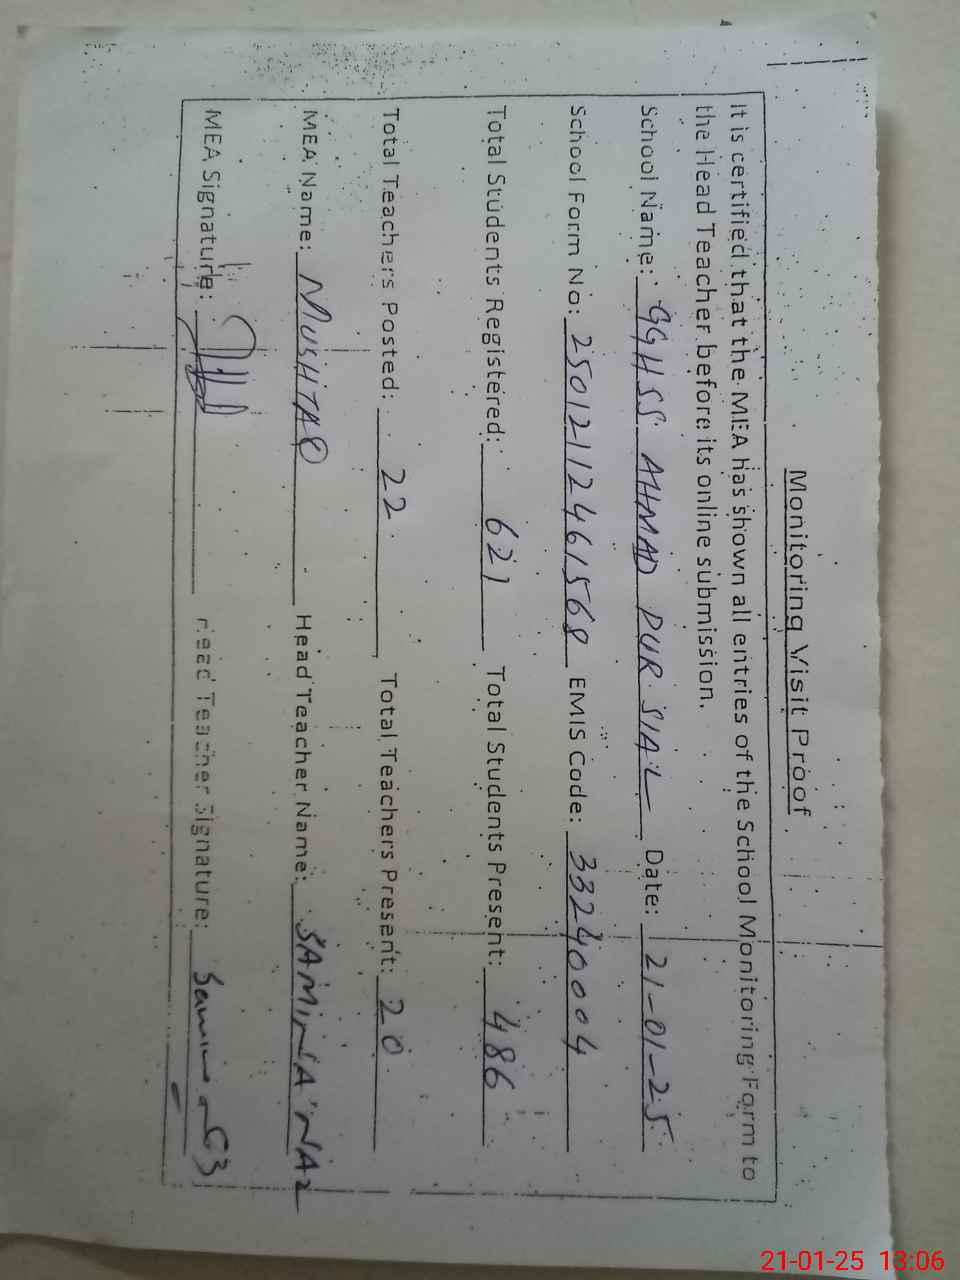 Monitoring Visit Proof
It is certified that the MEA has shown all entries of the School Monitoring Form to
the Head Teacher before its online submission.
School Name: GGHSS AHMAD PUR SIAL Date: 21-01-25
School Form No: 25012112461568 EMIS Code: 33240004
Total Students Registered: 621 Total Students Present: 486
Total Teachers Posted: 22 Total Teachers Present: 20
MEA Name: MUSHTAQ Head Teacher Name: SAMINA NAZ
MEA Signature: Head Teacher Signature:
21-01-25 13:06